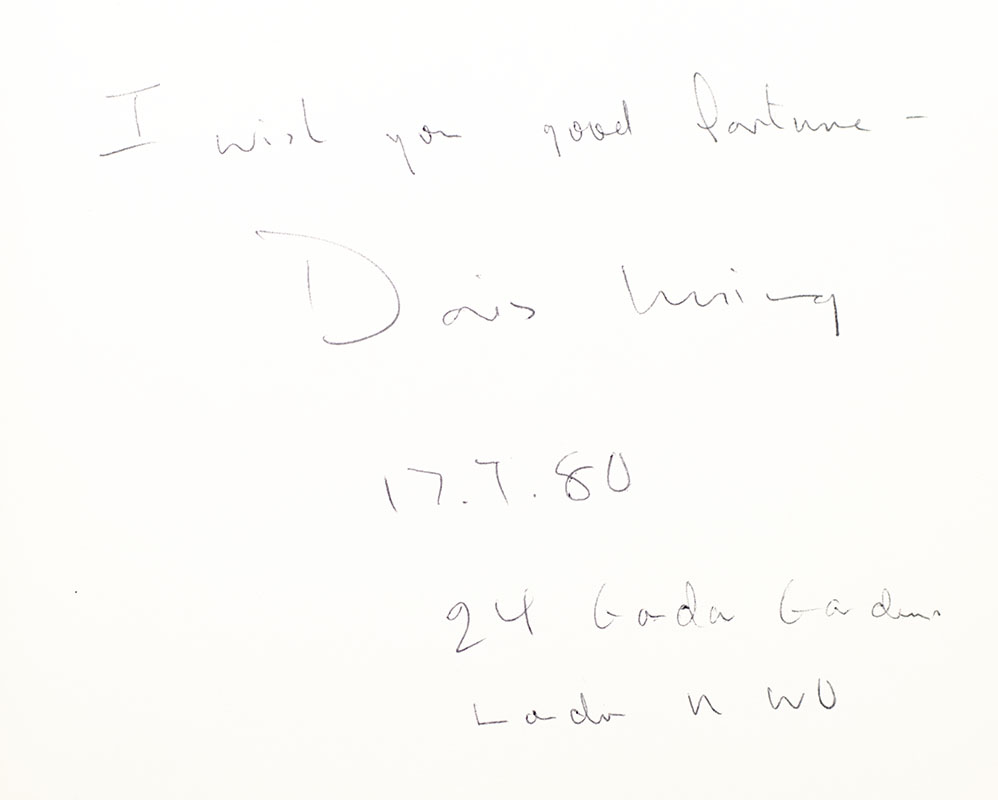 I wish you good fortune -
Doris Lessing
17.7.80
24 Gondar Gardens
London N W6